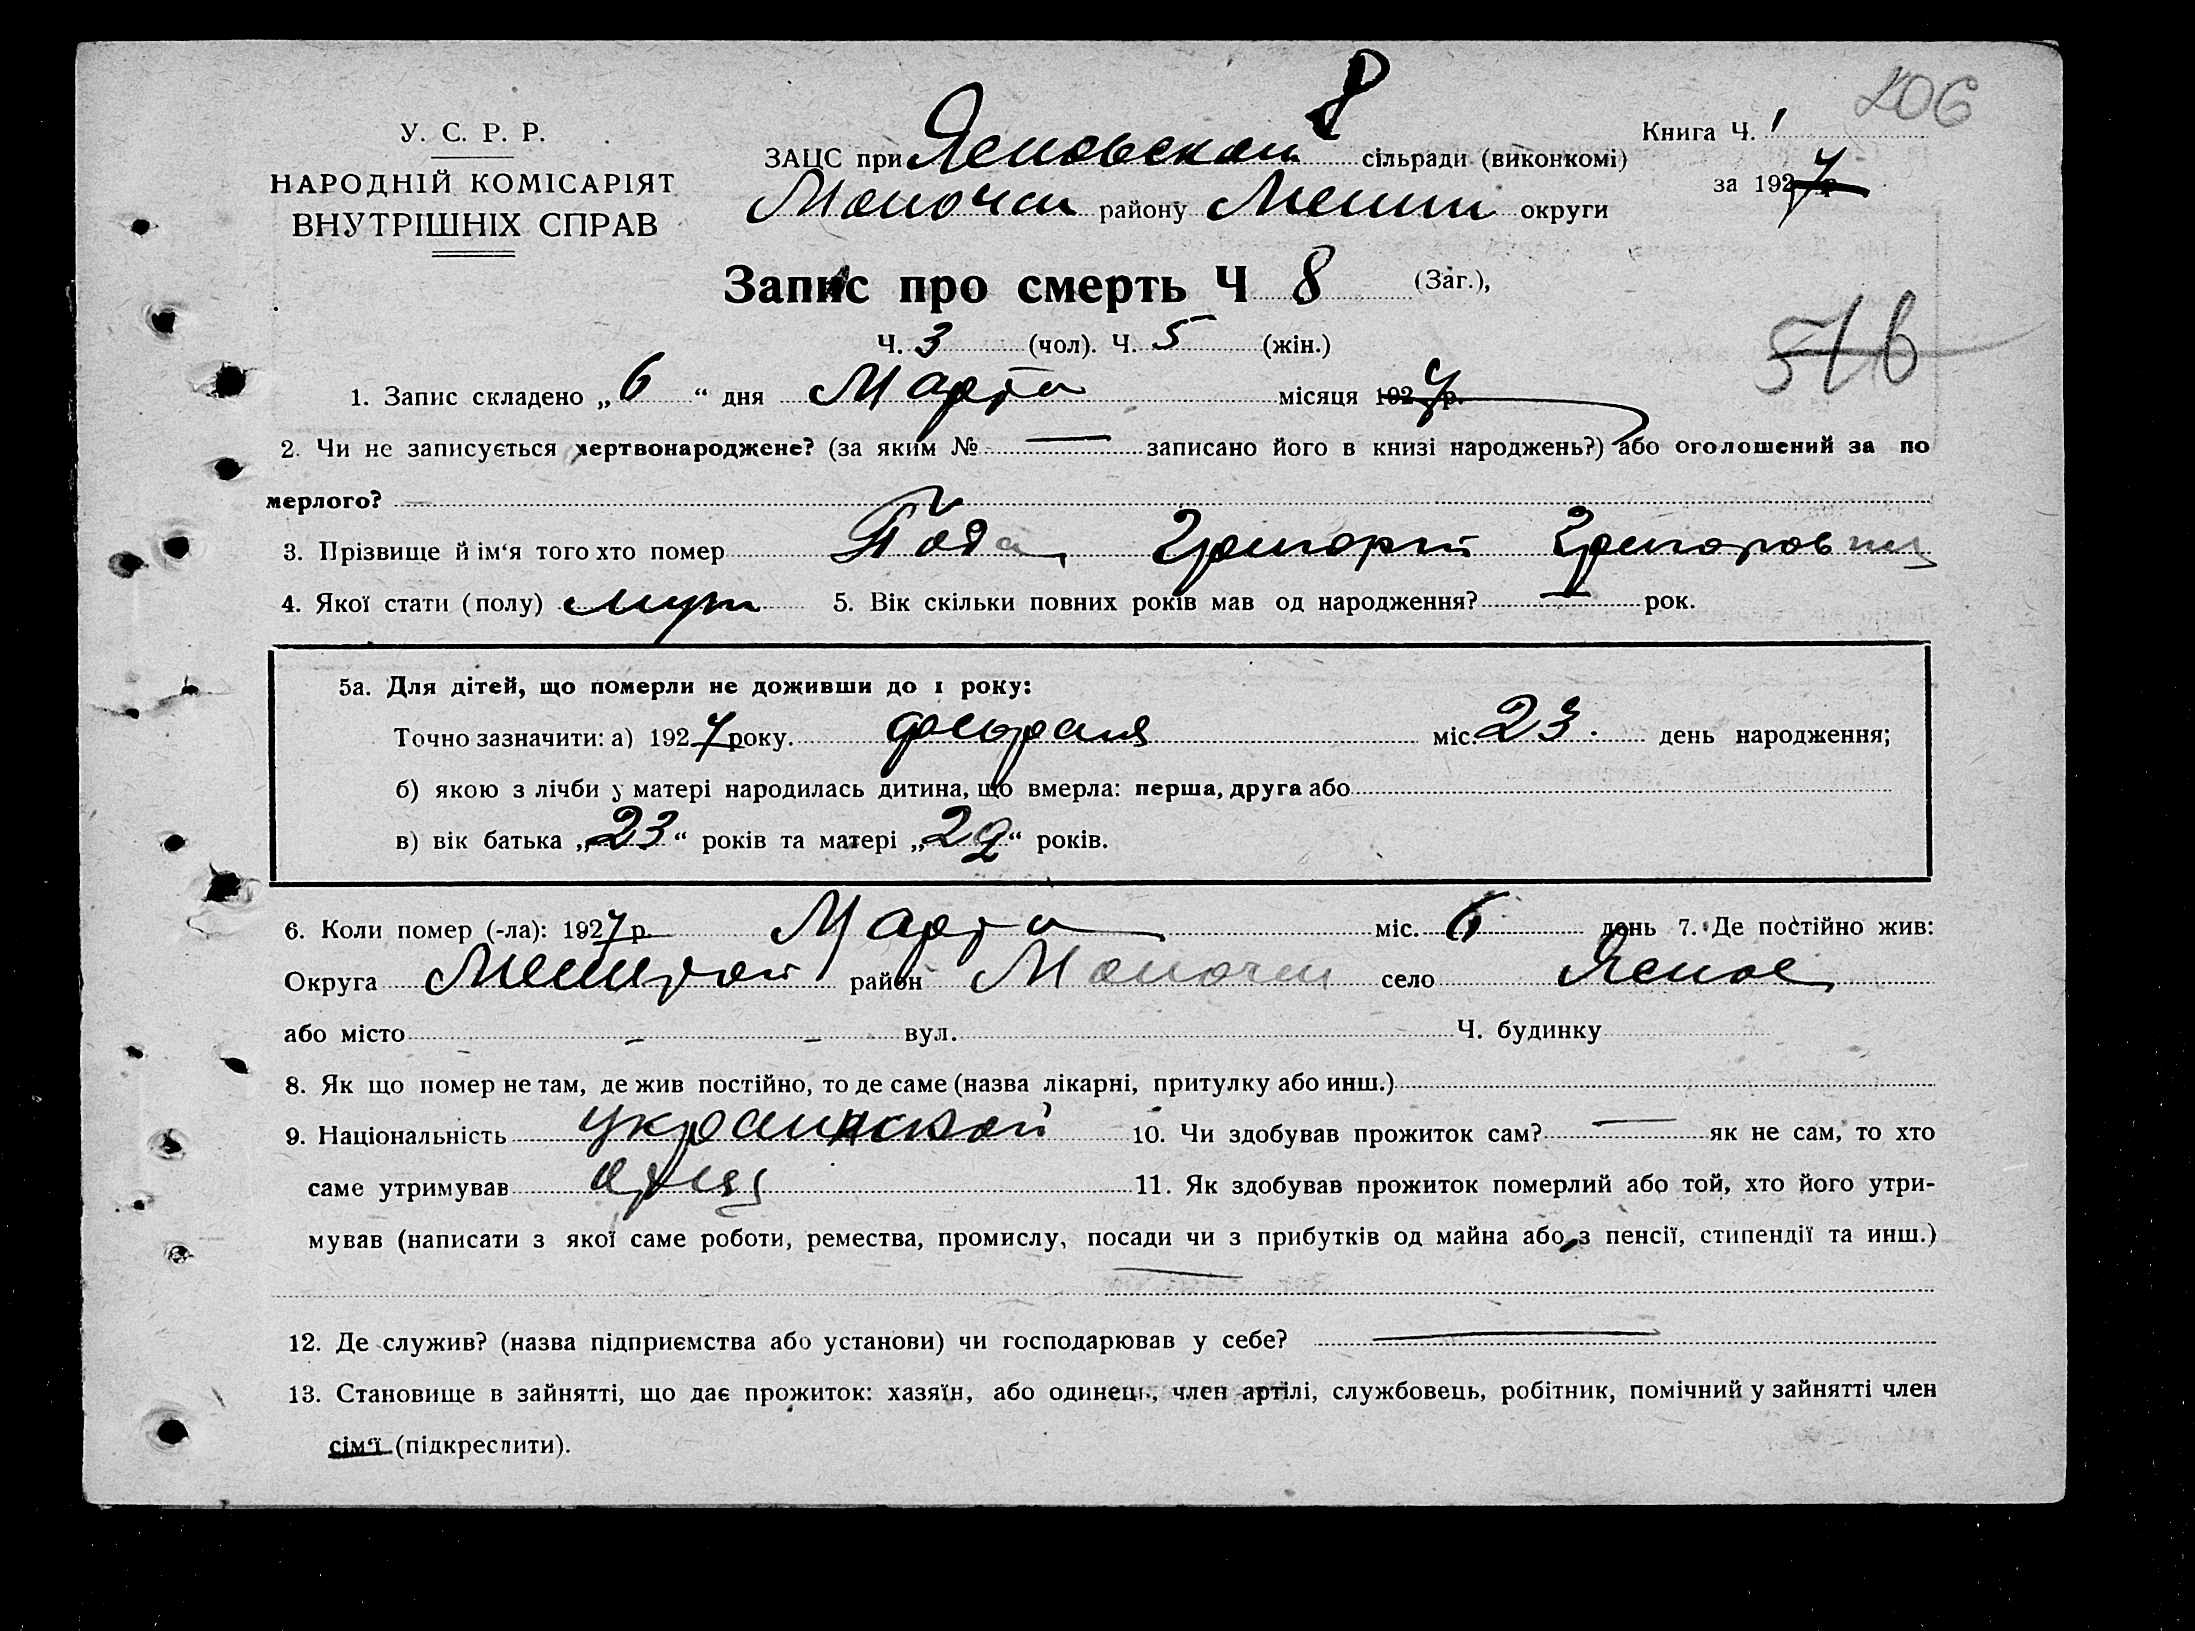 206
У. С. Р. Р.
НАРОДНІЙ КОМІСАРІЯТ
ВНУТРІШНІХ СПРАВ
8
Книга Ч. 1
за 1927 р.
ЗАЦС при Ясновской сільради (виконкомі)
району округи
Запис про смерть Ч 8 (Заг.),
Ч. 3 (чол). Ч. 5 (жін.)
516
1. Запис складено „6“ дня Марта місяця 1927 р.
2. Чи не записується мертвонароджене? (за яким № — записано його в книзі народжень?) або оголошений за по
мерлого?
3. Прізвище й ім'я того хто помер Григорий Григоров
4. Якої стати (полу) муж 5. Вік скільки повних років мав од народження? рок.
5а. Для дітей, що померли не доживши до 1 року:
Точно зазначити: а) 1927 року. февраля міс. 23 день народження;
б) якою з лічби у матері народилась дитина, що вмерла: перша, друга або
в) вік батька „23“ років та матері „22“ років.
6. Коли помер (-ла): 1927 р. Марта міс. 6 день 7. Де постійно жив:
Округа район село Ясное
або місто вул. Ч. будинку
8. Як що помер не там, де жив постійно, то де саме (назва лікарні, притулку або инш.)
9. Національність украинской 10. Чи здобував прожиток сам? — як не сам, то хто
саме утримував отец 11. Як здобував прожиток померлий або той, хто його утри-
мував (написати з якої саме роботи, ремества, промислу, посади чи з прибутків од майна або з пенсії, стипендії та инш.)
—
12. Де служив? (назва підприємства або установи) чи господарював у себе? —
13. Становище в зайнятті, що дає прожиток: хазяїн, або одинець, член артілі, службовець, робітник, помічний у зайнятті член
сім'ї (підкреслити).